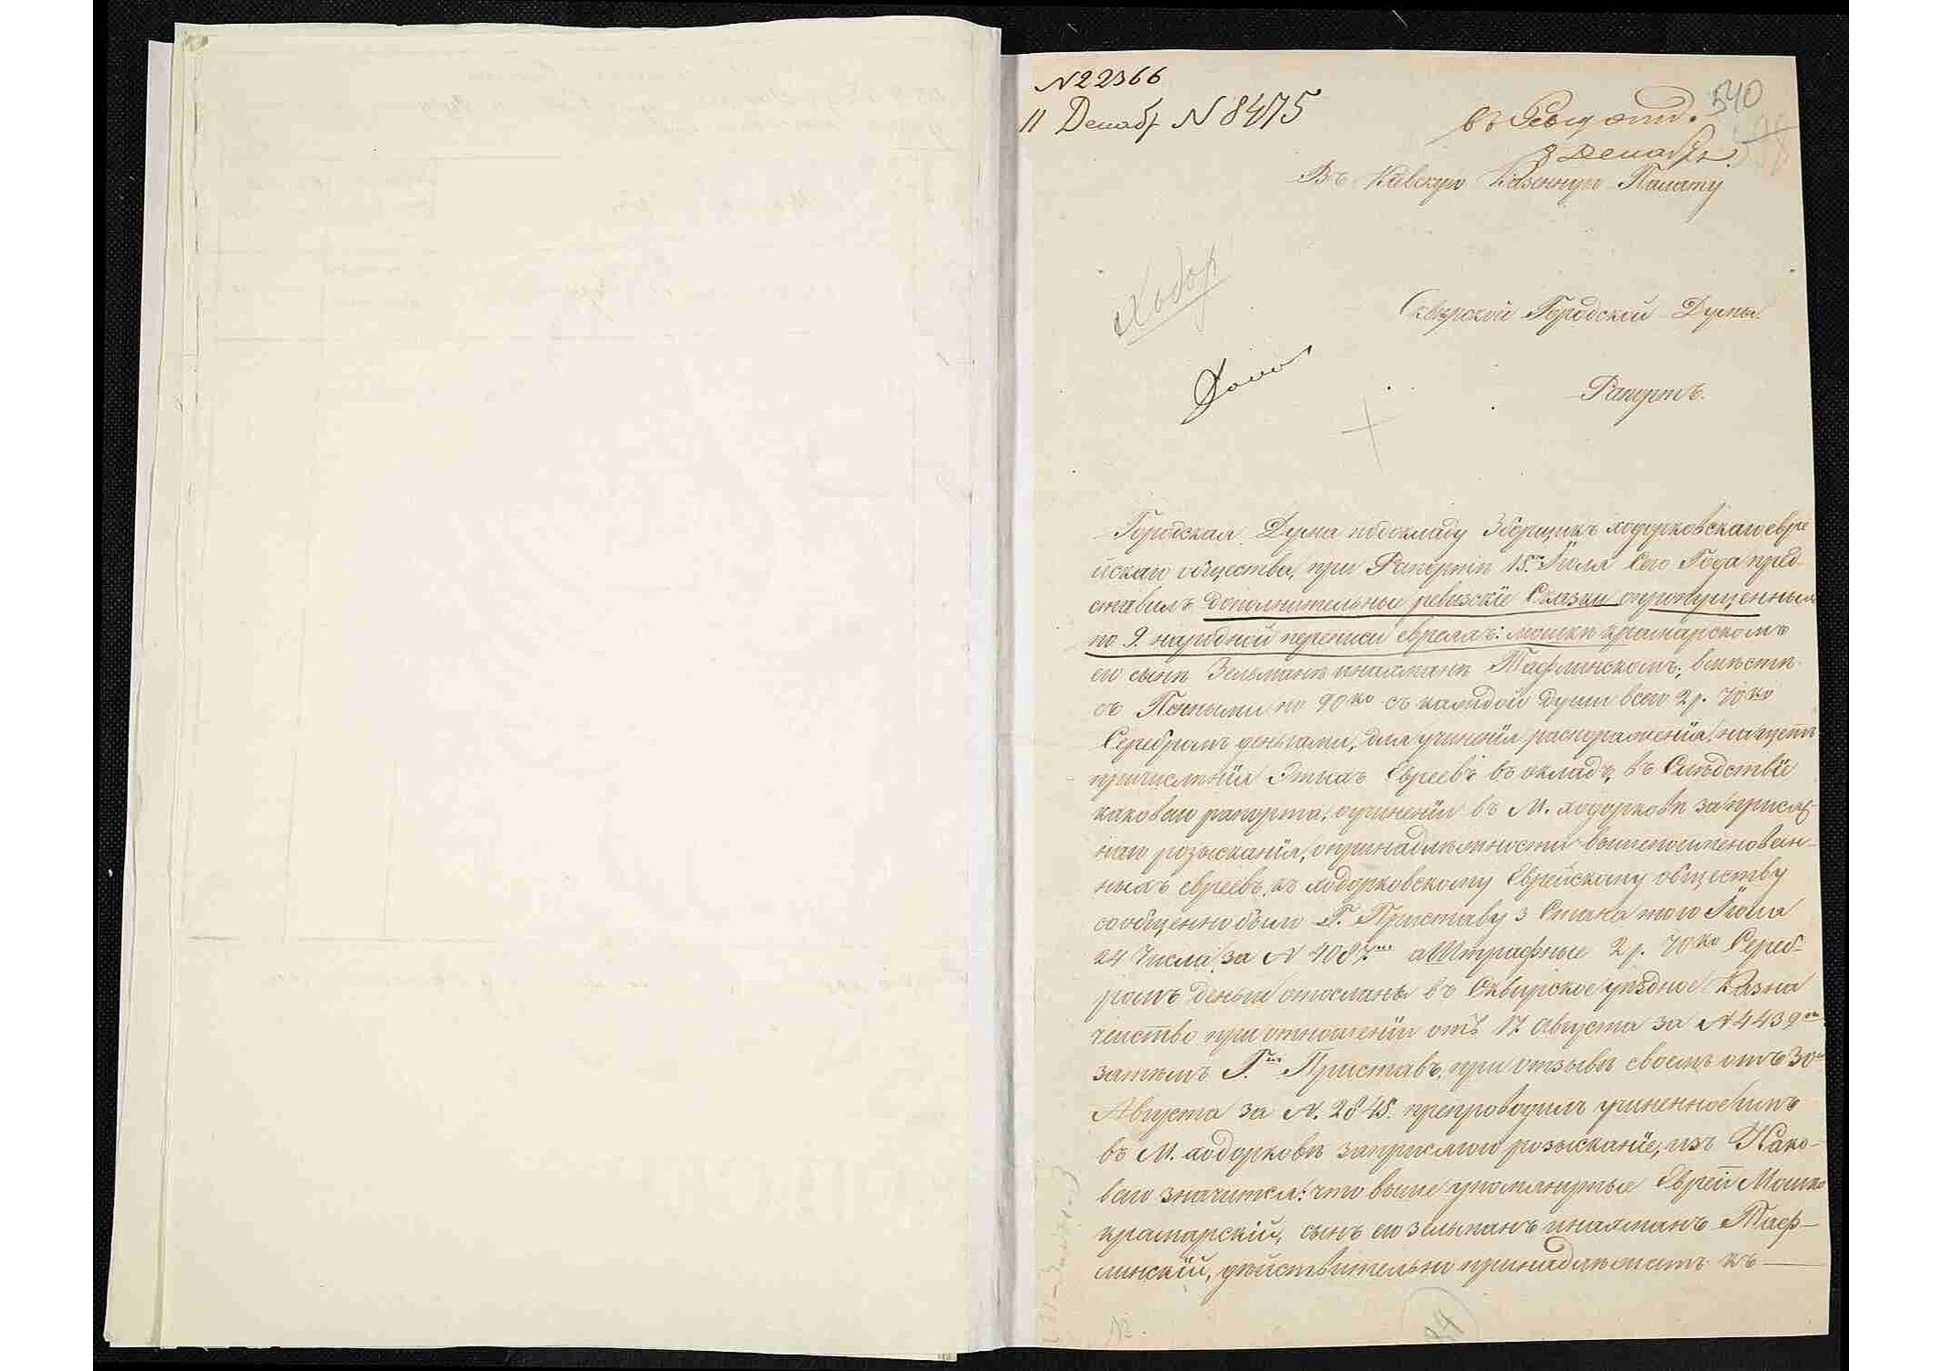 N 22366
11 Декабр N 8475
540
въ Ревид отд.
8 Декабря
Въ Кіевскую Казенную Палату
Ходор
Сквирской Городской Думы
Рапортъ.
Городская Дума подокладу Зборщикъ ходорковскаго евре
йскаго общества, при Рапортѣ 15го Іюля Сего Года пред-
ставилъ дополнительные ревизскіе Сказки опропущенныхъ
по 9. народной переписи евреяхъ: мошкѣ крамарскомъ
его сынѣ Зельманѣ инахманѣ Тафлинскомъ, вмѣстѣ
съ Пѣнными по 90 ко съ каждой души всего 2 р. 70 ко
Серебромъ деньгами, для учиненія распоряженія, насчетъ
причисленія Этихъ Евреевъ въ окладъ, въ Слѣдствіе
каковаго рапорта, oучиненіи въ М. ходорковѣ заприсяж
наго розысканія, опринадлежности вышепоименован-
ныхъ евреевъ, къ ходорковскому Еврейскому обществу
сообщенно было Г. Приставу 3 Стана того Іюля
24 Числа, за N 4087мъ аШтрафные 2 р. 70 ко Сереб-
ромъ деньги отосланы въ Сквирское уѣздное Казна
чейство при отношеніи отъ 17 Августа за N 4439мъ
затѣмъ Г.нъ Приставъ, при отзывѣ своемъ отъ 30го
Августа за N. 2845. препроводилъ учиненное имъ
въ М. ходорковѣ заприсяжно розысканіе, изъ Како-
ваго значится: что выше упомянутые Евреи Мошко
крамарскій, сынъ его зельманъ инахманъ Таф-
линскій, дѣйствительно принадлежатъ къ
84